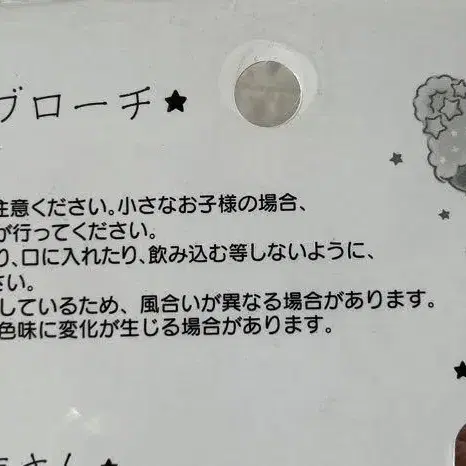 ブローチ★
注意ください。小さなお子様の場合、
が行ってください。
り、口に入れたり、飲み込む等しないように、
さい。
しているため、風合いが異なる場合があります。
色味に変化が生じる場合があります。
さん★